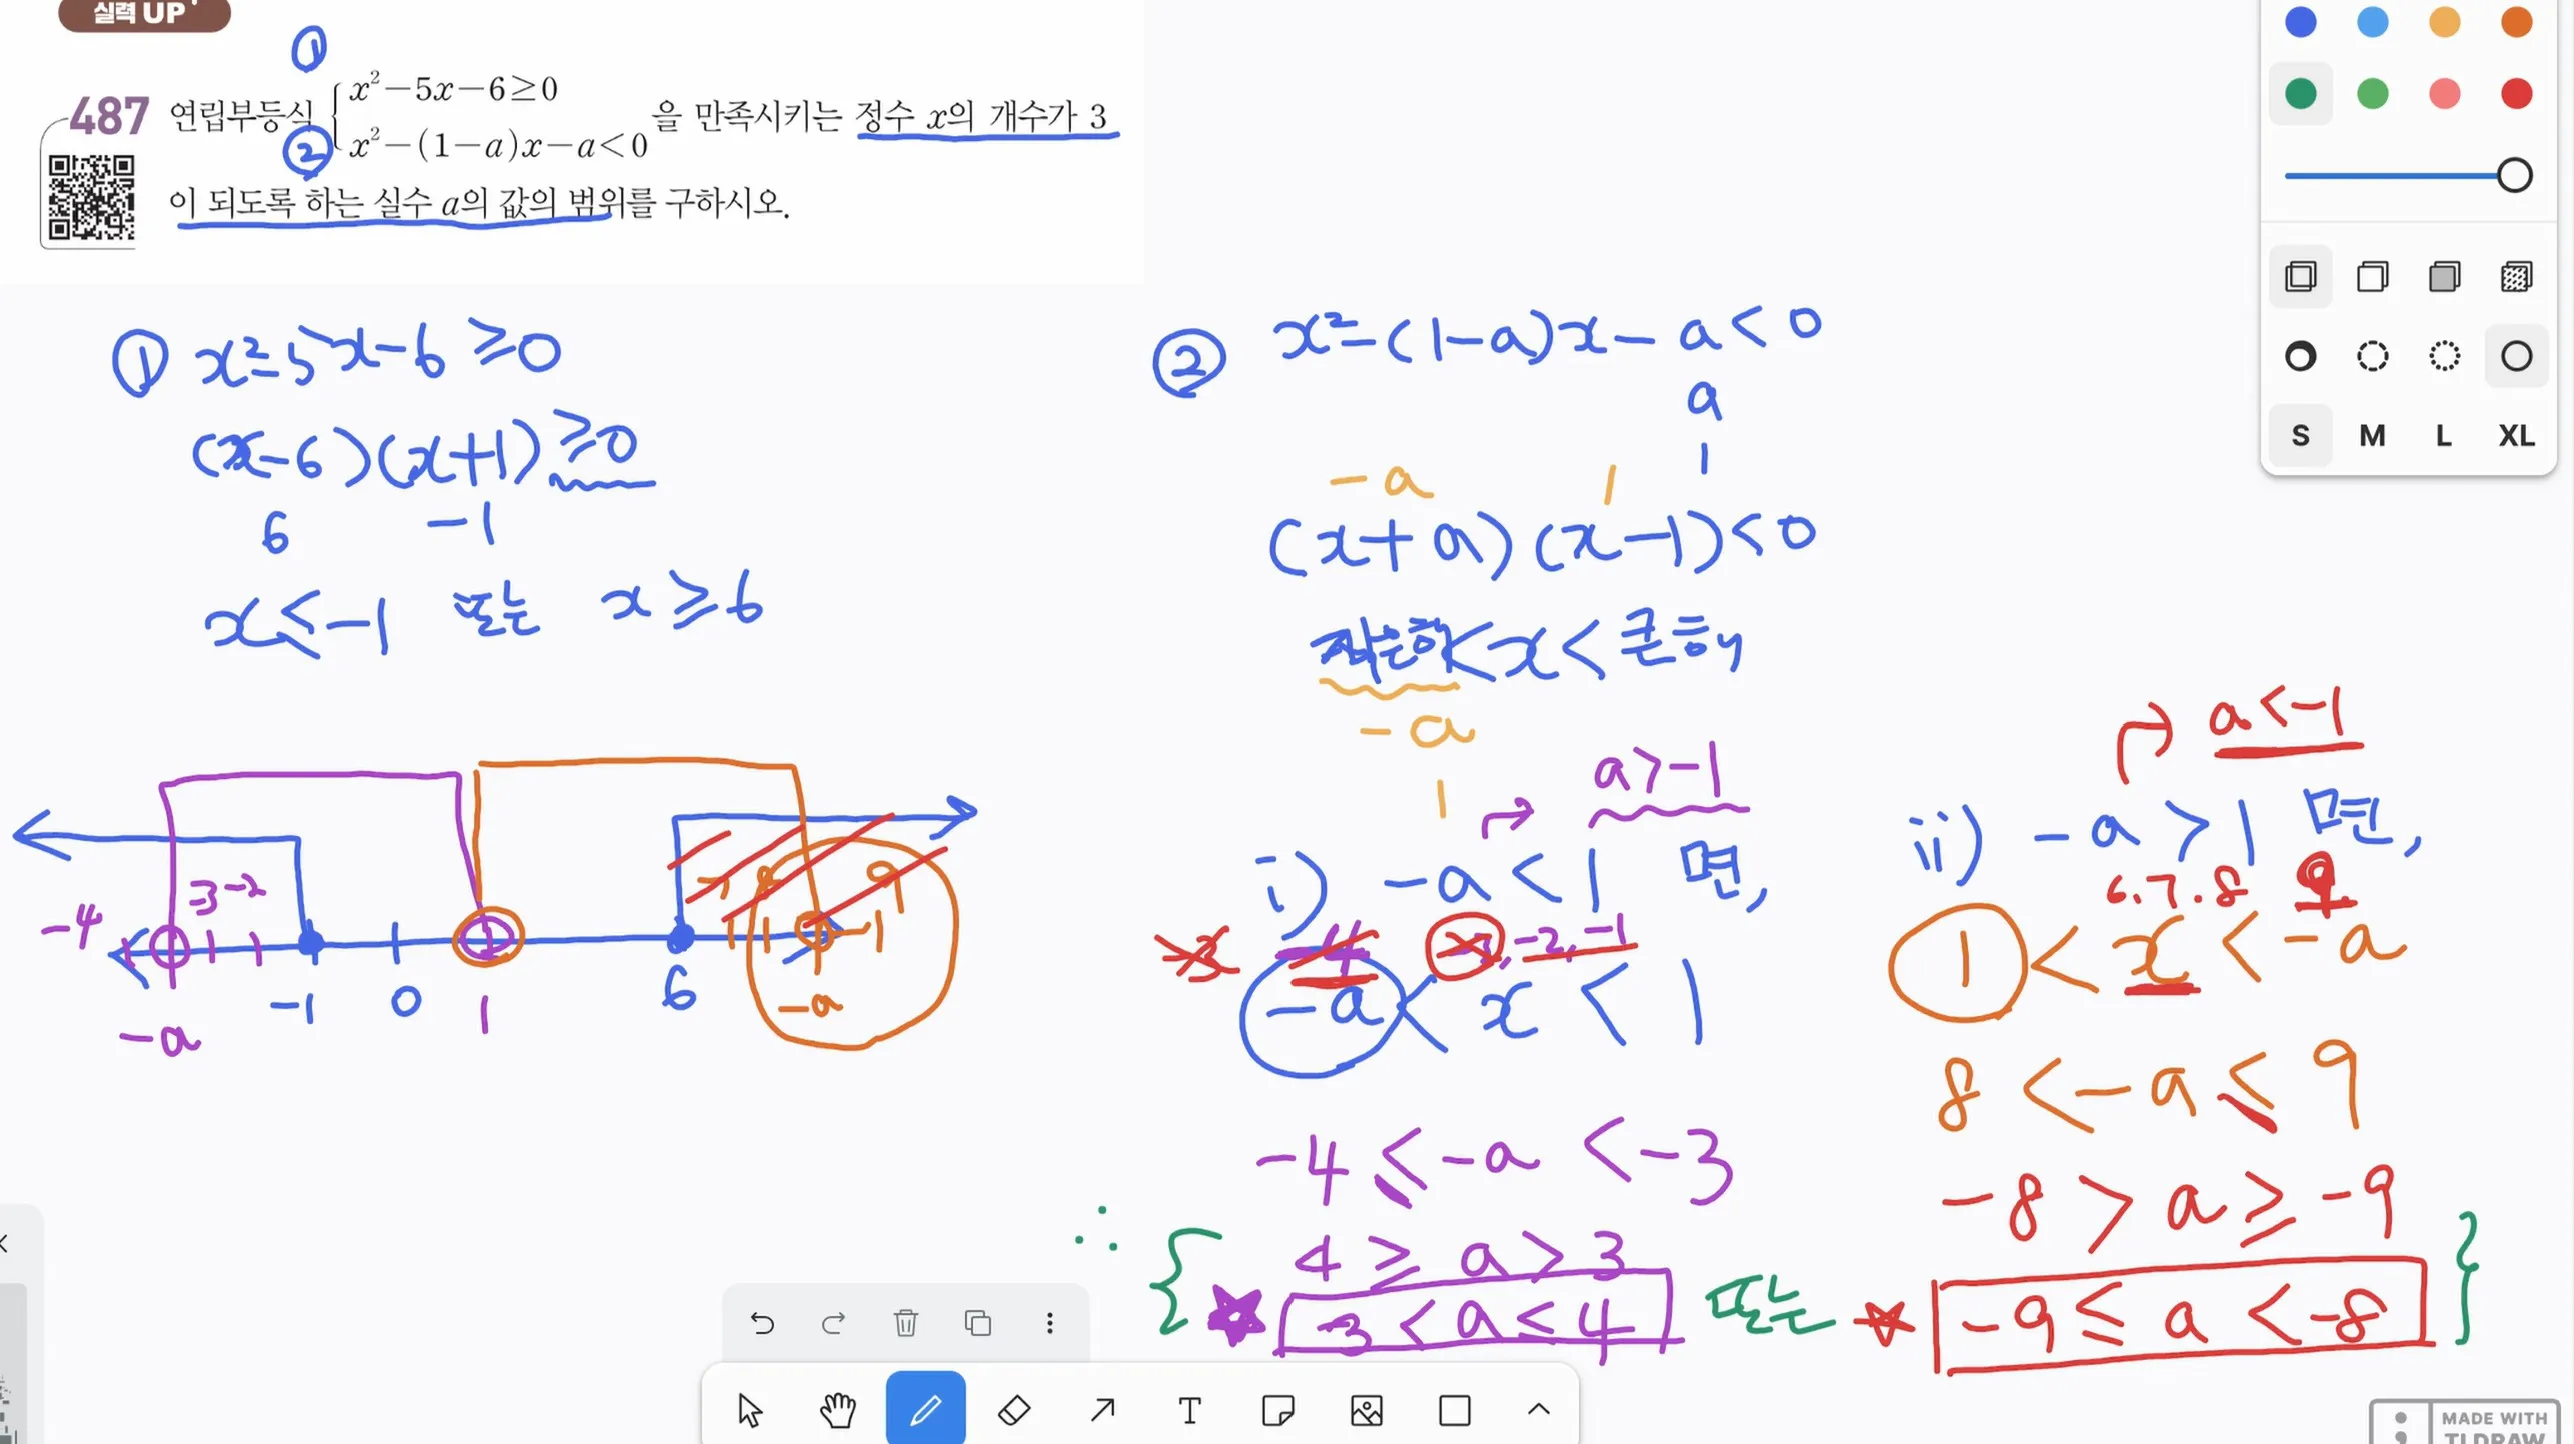 실력 UP
①
487 연립부등식 { x²-5x-6≥0
② x²-(1-a)x-a<0 을 만족시키는 정수 x의 개수가 3
이 되도록 하는 실수 a의 값의 범위를 구하시오.
① x²-5x-6≥0
(x-6)(x+1)≥0
6 -1
x≤-1 또는 x≥6
-4 -3 -2 7 8 9
-a -1 0 1 6 -a
② x²-(1-a)x-a<0
a
1
-a 1
(x+a)(x-1)<0
작은해<x<큰해
-a
1
a>-1
i) -a<1 면,
-2, -1
-a<x<1
-4≤-a<-3
4≥a>3
3<a≤4
또는
a<-1
ii) -a>1 면,
6.7.8 9
1<x<-a
8<-a≤9
-8>a≥-9
-9≤a<-8
∴ { }
S M L XL
T
MADE WITH
TLDRAW